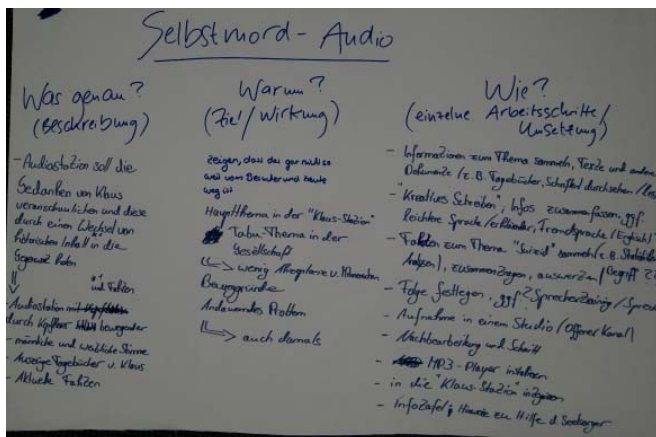 Selbstmord - Audio
Was genau?
(Beschreibung)
- Audiostation soll die
Gedanken von Klaus
veranschaulichen und diese
durch einen Wechsel von
historischen Inhalt in die
Gegenwart holen
- Audiostation mit
durch Kopfhörer
- männliche und weibliche Stimme
- Auszüge Tagebücher v. Klaus
- Aktuelle Fakten
Warum?
(Ziel / Wirkung)
zeigen, dass das gar nicht so
weit vom Besucher und heute
weg ist
Hauptthema in der "Klaus-Station"
Tabu-Thema in der
Gesellschaft
wenig
Beweggründe
Andauerndes Problem
auch damals
Wie?
(einzelne Arbeitsschritte /
Umsetzung)
- Informationen zum Thema sammeln, Texte und andere
Dokumente / z.B. Tagebücher,
- "Kreatives Schreiben", Infos zusammenfassen, ggf.
leichtere Sprache / Fremdsprache (Englisch)
- Fakten zum Thema "Suizid" sammeln (z.B.
zusammentragen, auswerten / Begriff
- Folge festlegen, ggf.
- Aufnahme in einem Studio (Offener Kanal)
- Nachbearbeitung und Schnitt
- MP3-Player
- in die "Klaus-Station"
- Infotafel; Hinweise zu Hilfe